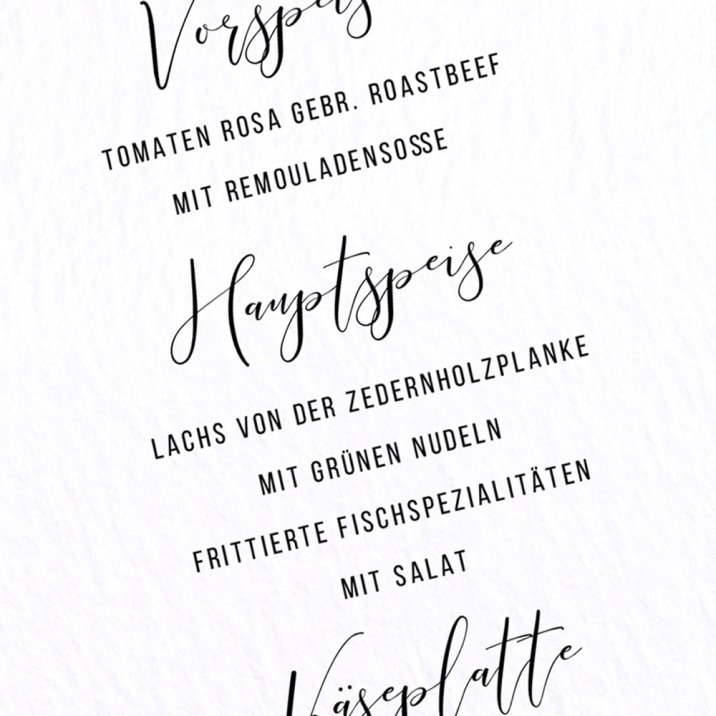 Vorspeis
TOMATEN ROSA GEBR. ROASTBEEF
MIT REMOULADENSOSSE
Hauptspeise
LACHS VON DER ZEDERNHOLZPLANKE
MIT GRÜNEN NUDELN
FRITTIERTE FISCHSPEZIALITÄTEN
MIT SALAT
Käseplatte